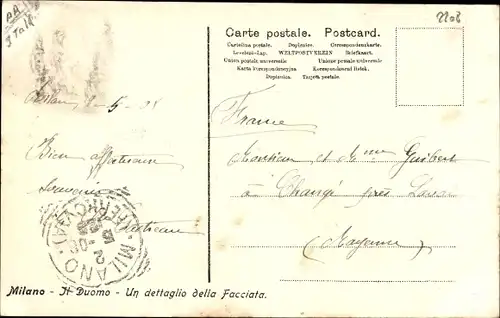 2208
Carte postale. Postcard.
Cartolina postale. Dopisnice. Correspondenzkarte.
Levelezö-Lap. WELTPOSTVEREIN Briefkaart.
Union postale universelle. Unione postale universale
Karta korespondencyjna Korespondenční lístek.
Dopisnica. Tarjeta postal.
France
Bien affectueux
souvenir
Monsieur et Mme Guibert
à Changé près Laval
(Mayenne)
MILANO
(FERROVIA)
Milano - Il Duomo - Un dettaglio della Facciata.